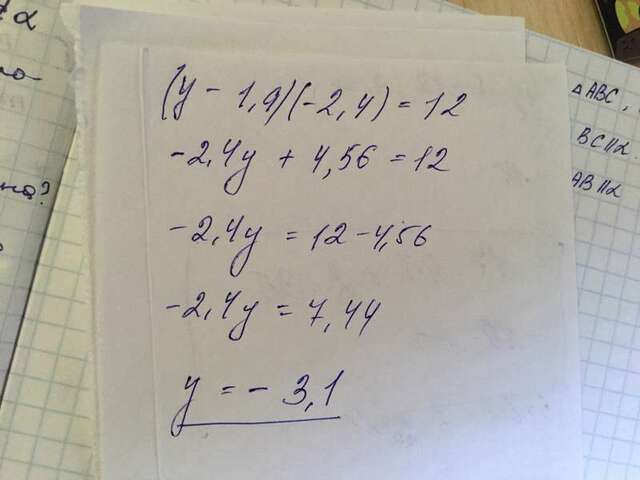 α
(y - 1,9)(-2,4) = 12
-2,4y + 4,56 = 12
-2,4y = 12 - 4,56
-2,4y = 7,44
y = - 3,1
на?
△ABC,
BC∥α
AB∥α